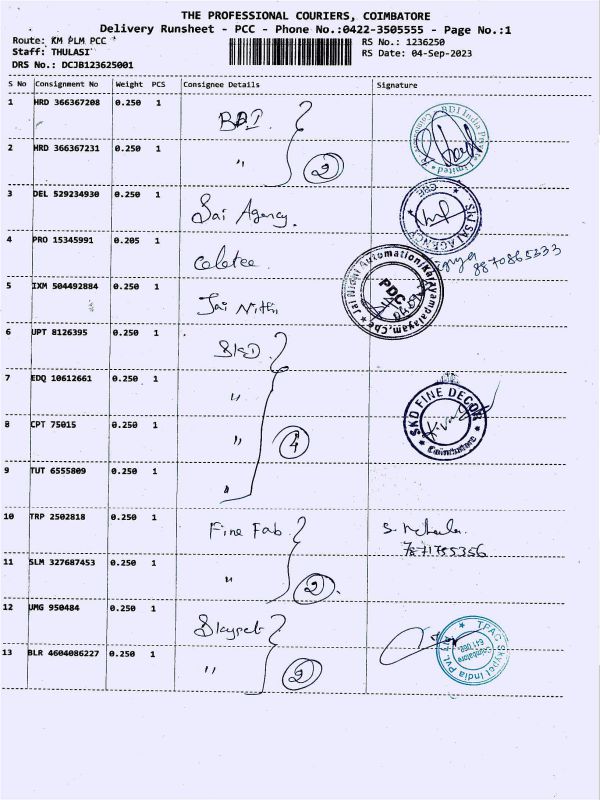 THE PROFESSIONAL COURIERS, COIMBATORE
Delivery Runsheet - PCC - Phone No.:0422-3505555 - Page No.:1
Route: KM PLM PCC
RS No.: 1236250
Staff: THULASI
RS Date: 04-Sep-2023
DRS No.: DCJB123625001
S No Consignment No Weight PCS Consignee Details Signature
1 HRD 366367208 0.250 1 BDI
BDI India Private Limited
2 HRD 366367231 0.250 1 " 2
3 DEL 529234930 0.250 1 Sai Agency.
SAI AGENCY CBE
4 PRO 15345991 0.205 1
8870865333
Jai Nidhi Automation Kalayampalayam, Cbe
PDC
5 IXM 504492884 0.250 1 Jai Nithi
6 UPT 8126395 0.250 1 SKD
7 EDQ 10612661 0.250 1 "
SKD FINE DECOR
Coimbatore
8 CPT 75015 0.250 1 " 4
9 TUT 6555809 0.250 1 "
10 TRP 2502818 0.250 1 Fine Fab
7871755356
11 SLM 327687453 0.250 1 " 2
12 UMG 950484 0.250 1 Skypet
TPAC Skypet India Pvt. Ltd.
Coimbatore
641 062.
13 BLR 4604086227 0.250 1 " 2